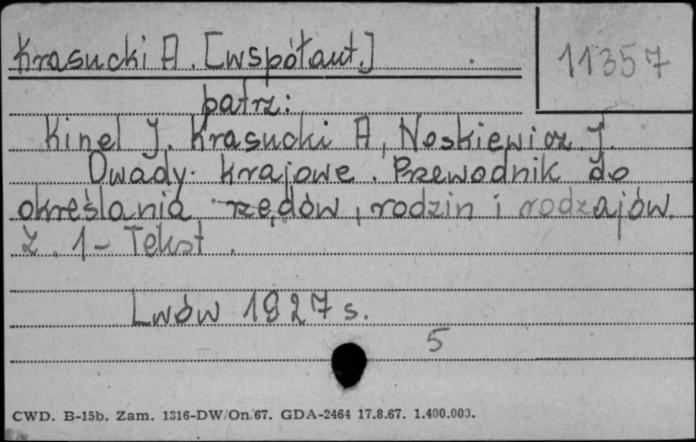 Krasucki A. [współaut.]
11357
patrz:
Kinel J. Krasucki A, Noskiewicz J.
Owady krajowe. Przewodnik do
określania rzędów, rodzin i rodzajów.
Z. 1 - Tekst.
Lwów 1927 s.
5
CWD. B-15b. Zam. 1316-DW/On/67. GDA-2464 17.8.67. 1.400.003.